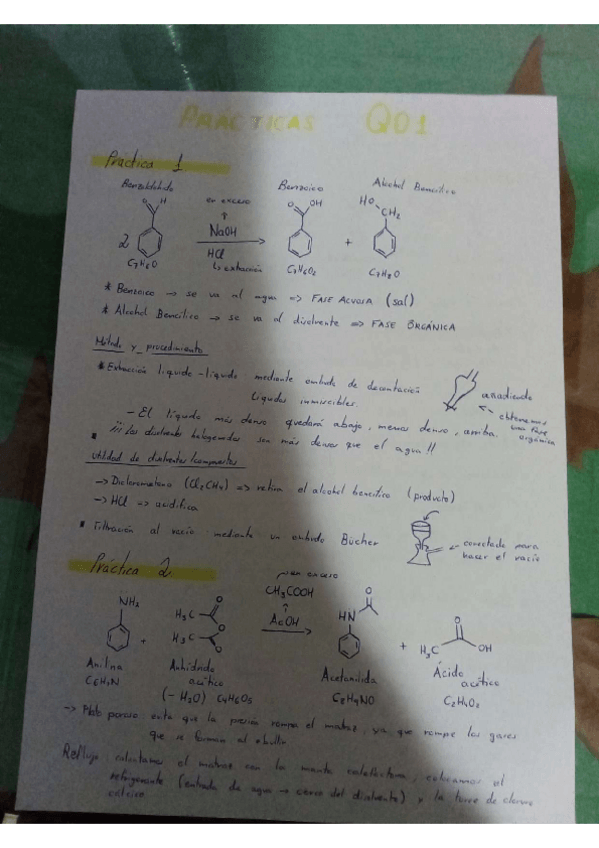 PRÁCTICAS QO1
Práctica 1
Benzaldehído
Benzoico
Alcohol Bencílico
en exceso
H
O
OH
O
HO
CH2
2
NaOH
HCl
↳ extracción
+
C7H6O
C7H6O2
C7H8O
* Benzoico → se va al agua => FASE ACUOSA (sal)
* Alcohol Bencílico → se va al disolvente => FASE ORGÁNICA
Método y procedimiento
* Extracción líquido-líquido mediante embudo de decantación
Líquidos inmiscibles.
añadiendo
obtenemos
una fase
orgánica
- El líquido más denso quedará abajo, menos denso, arriba.
¡¡¡Los disolventes halogenados son más densos que el agua!!
Utilidad de disolventes/compuestos
→ Diclorometano => retira el alcohol bencílico (producto)
→ HCl => acidifica
Filtración al vacío mediante un embudo Bücher
conectado para
hacer el vacío
Práctica 2
en exceso
CH3COOH
AcOH
NH2
H3C
O
O
H3C
O
HN
O
H3C
O
OH
+
+
Anilina
Anhídrido
acético
Acetanilida
Ácido
acético
(- H2O) C4H6O3
C2H4O2
→ Plato poroso evita que la presión rompa el matraz, ya que rompe los gases
que se forman al ebullir
Reflujo: calentamos el matraz con la manta calefactora, colocamos el
refrigerante (entrada de agua → cerca del disolvente) y la torre de cloruro
cálcico